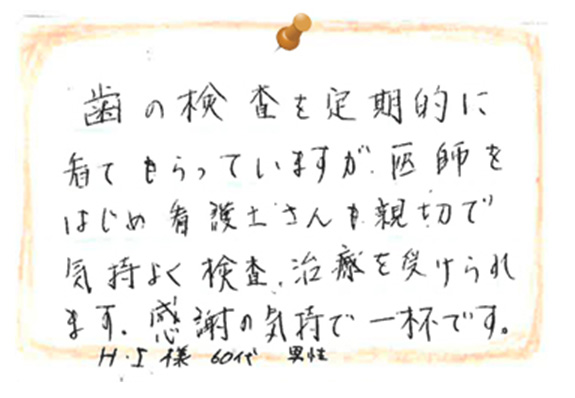 歯の検査を定期的に
看てもらっていますが、医師を
はじめ看護士さんも親切で
気持よく検査、治療を受けられ
ます、感謝の気持で一杯です。
H・I様 60代 男性